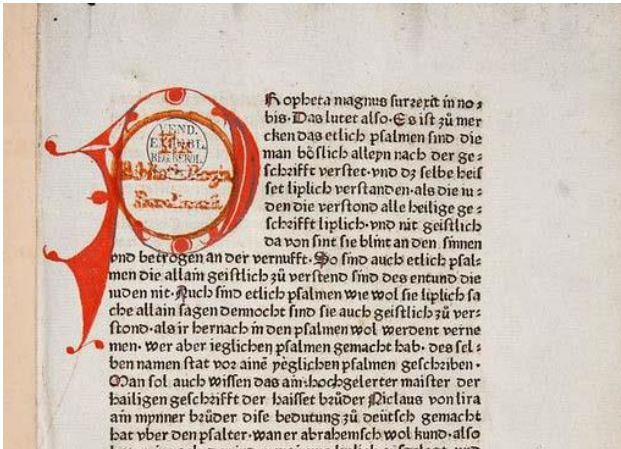 Propheta magnus surrexit in no⸗
bis·Das lutet also·Es ist zů mer
cken das etlich psalmen sind die
man bőslich alleyn nach der ge⸗
schrifft verstet·vnd dz selbe heis
set liplich verstanden·als die iu⸗
den die verstond alle heilige ge⸗
schrifft liplich·vnd nit geistlich
da von sint sie blint an den sinnen
vnd betrogen an der vernufft·So sind auch etlich psal⸗
men die allain geistlich zů verstend sind des entund die
iuden nit·Auch sind etlich psalmen wie wol sie liplich sa
che allain sagen dennocht sind sie auch geistlich zů ver⸗
stond·als ir hernach in den psalmen wol werdent verne
men·wer aber ieglichen psalmen gemacht hab·des sel⸗
ben namen stat vor ainē yeglichen psalmen geschriben·
Man sol auch wissen das ain·hochgelerter maister der
hailigen geschrifft der haisset brůder Niclaus von lira
ain mynner brůder dise bedutung zů deütsch gemacht
hat vber den psalter·wan er abrahemsch wol kund·also
VEND.
EX BIBL.
REG. BEROL.